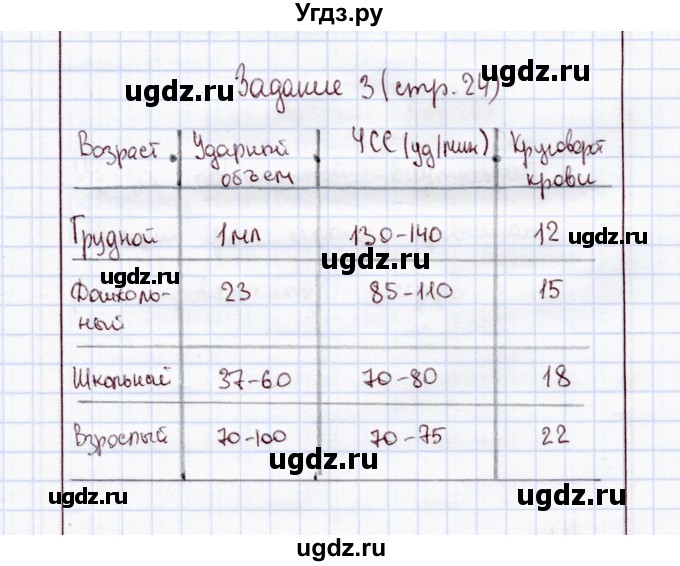 Угдз.ру
Задание 3 (стр. 24)
Возраст Ударный объем ЧСС (уд/мин) Круговорот крови
Грудной 1 мл 130-140 12
Дошкольный 23 85-110 15
Школьный 37-60 70-80 18
Взрослый 70-100 70-75 22
ugdz.ru
ugdz.ru
ugdz.ru
ugdz.ru
ugdz.ru
ugdz.ru
ugdz.ru
ugdz.ru
ugdz.ru
ugdz.ru
ugdz.ru